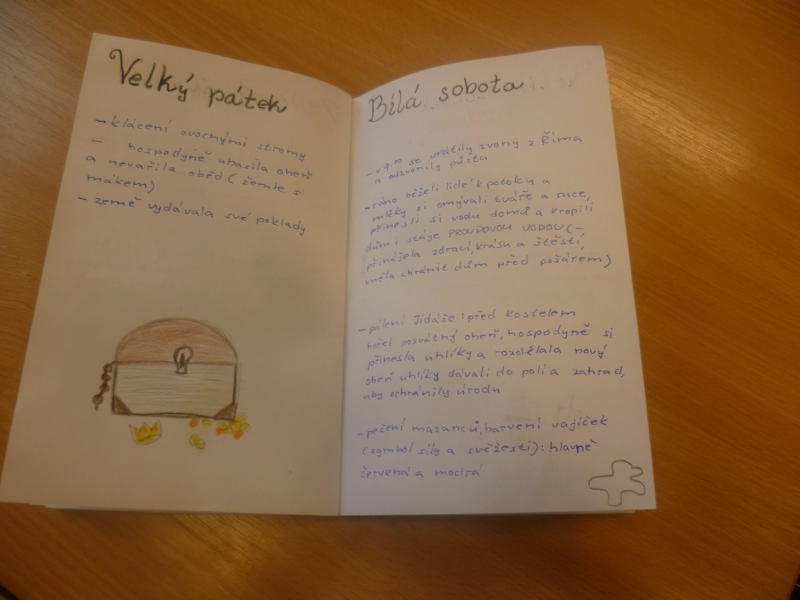 Velký pátek
- klácení ovocnými stromy
- hospodyně uhasila oheň
a nevařila oběd (žemle s
mákem)
- země vydávala své poklady
Bílá sobota
- v 9.00 se vrátily zvony z Říma
a odzvonily půsta
- ráno běželi lidé k potoku a
mlčky si omývali tváře a ruce,
přinesli si vodu domů a kropili
dům i stáje PROUDOVOU VODOU (-
přinášela zdraví, krásu a štěstí,
měla chránit dům před požárem)
- pálení Jidáše: před kostelem
hořel posvátný oheň, hospodyně si
přinesla uhlíky a rozdělala nový
oheň uhlíky dávali do polí a zahrad,
aby ochránily úrodu
- pečení mazanců, barvení vajíček
(symbol síly a svěžesti): hlavně
červená a modrá